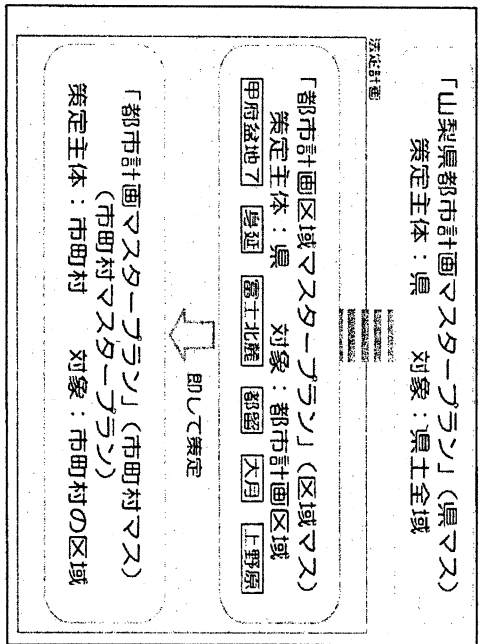 「山梨県都市計画マスタープラン」(県マス)
策定主体：県　対象：県土全域
法定計画
「都市計画区域マスタープラン」(区域マス)
策定主体：県　対象：都市計画区域
甲府盆地7　身延　富士北麓　都留　大月　上野原
即して策定
「都市計画マスタープラン」(市町村マス)
(市町村マスタープラン)
策定主体：市町村　対象：市町村の区域